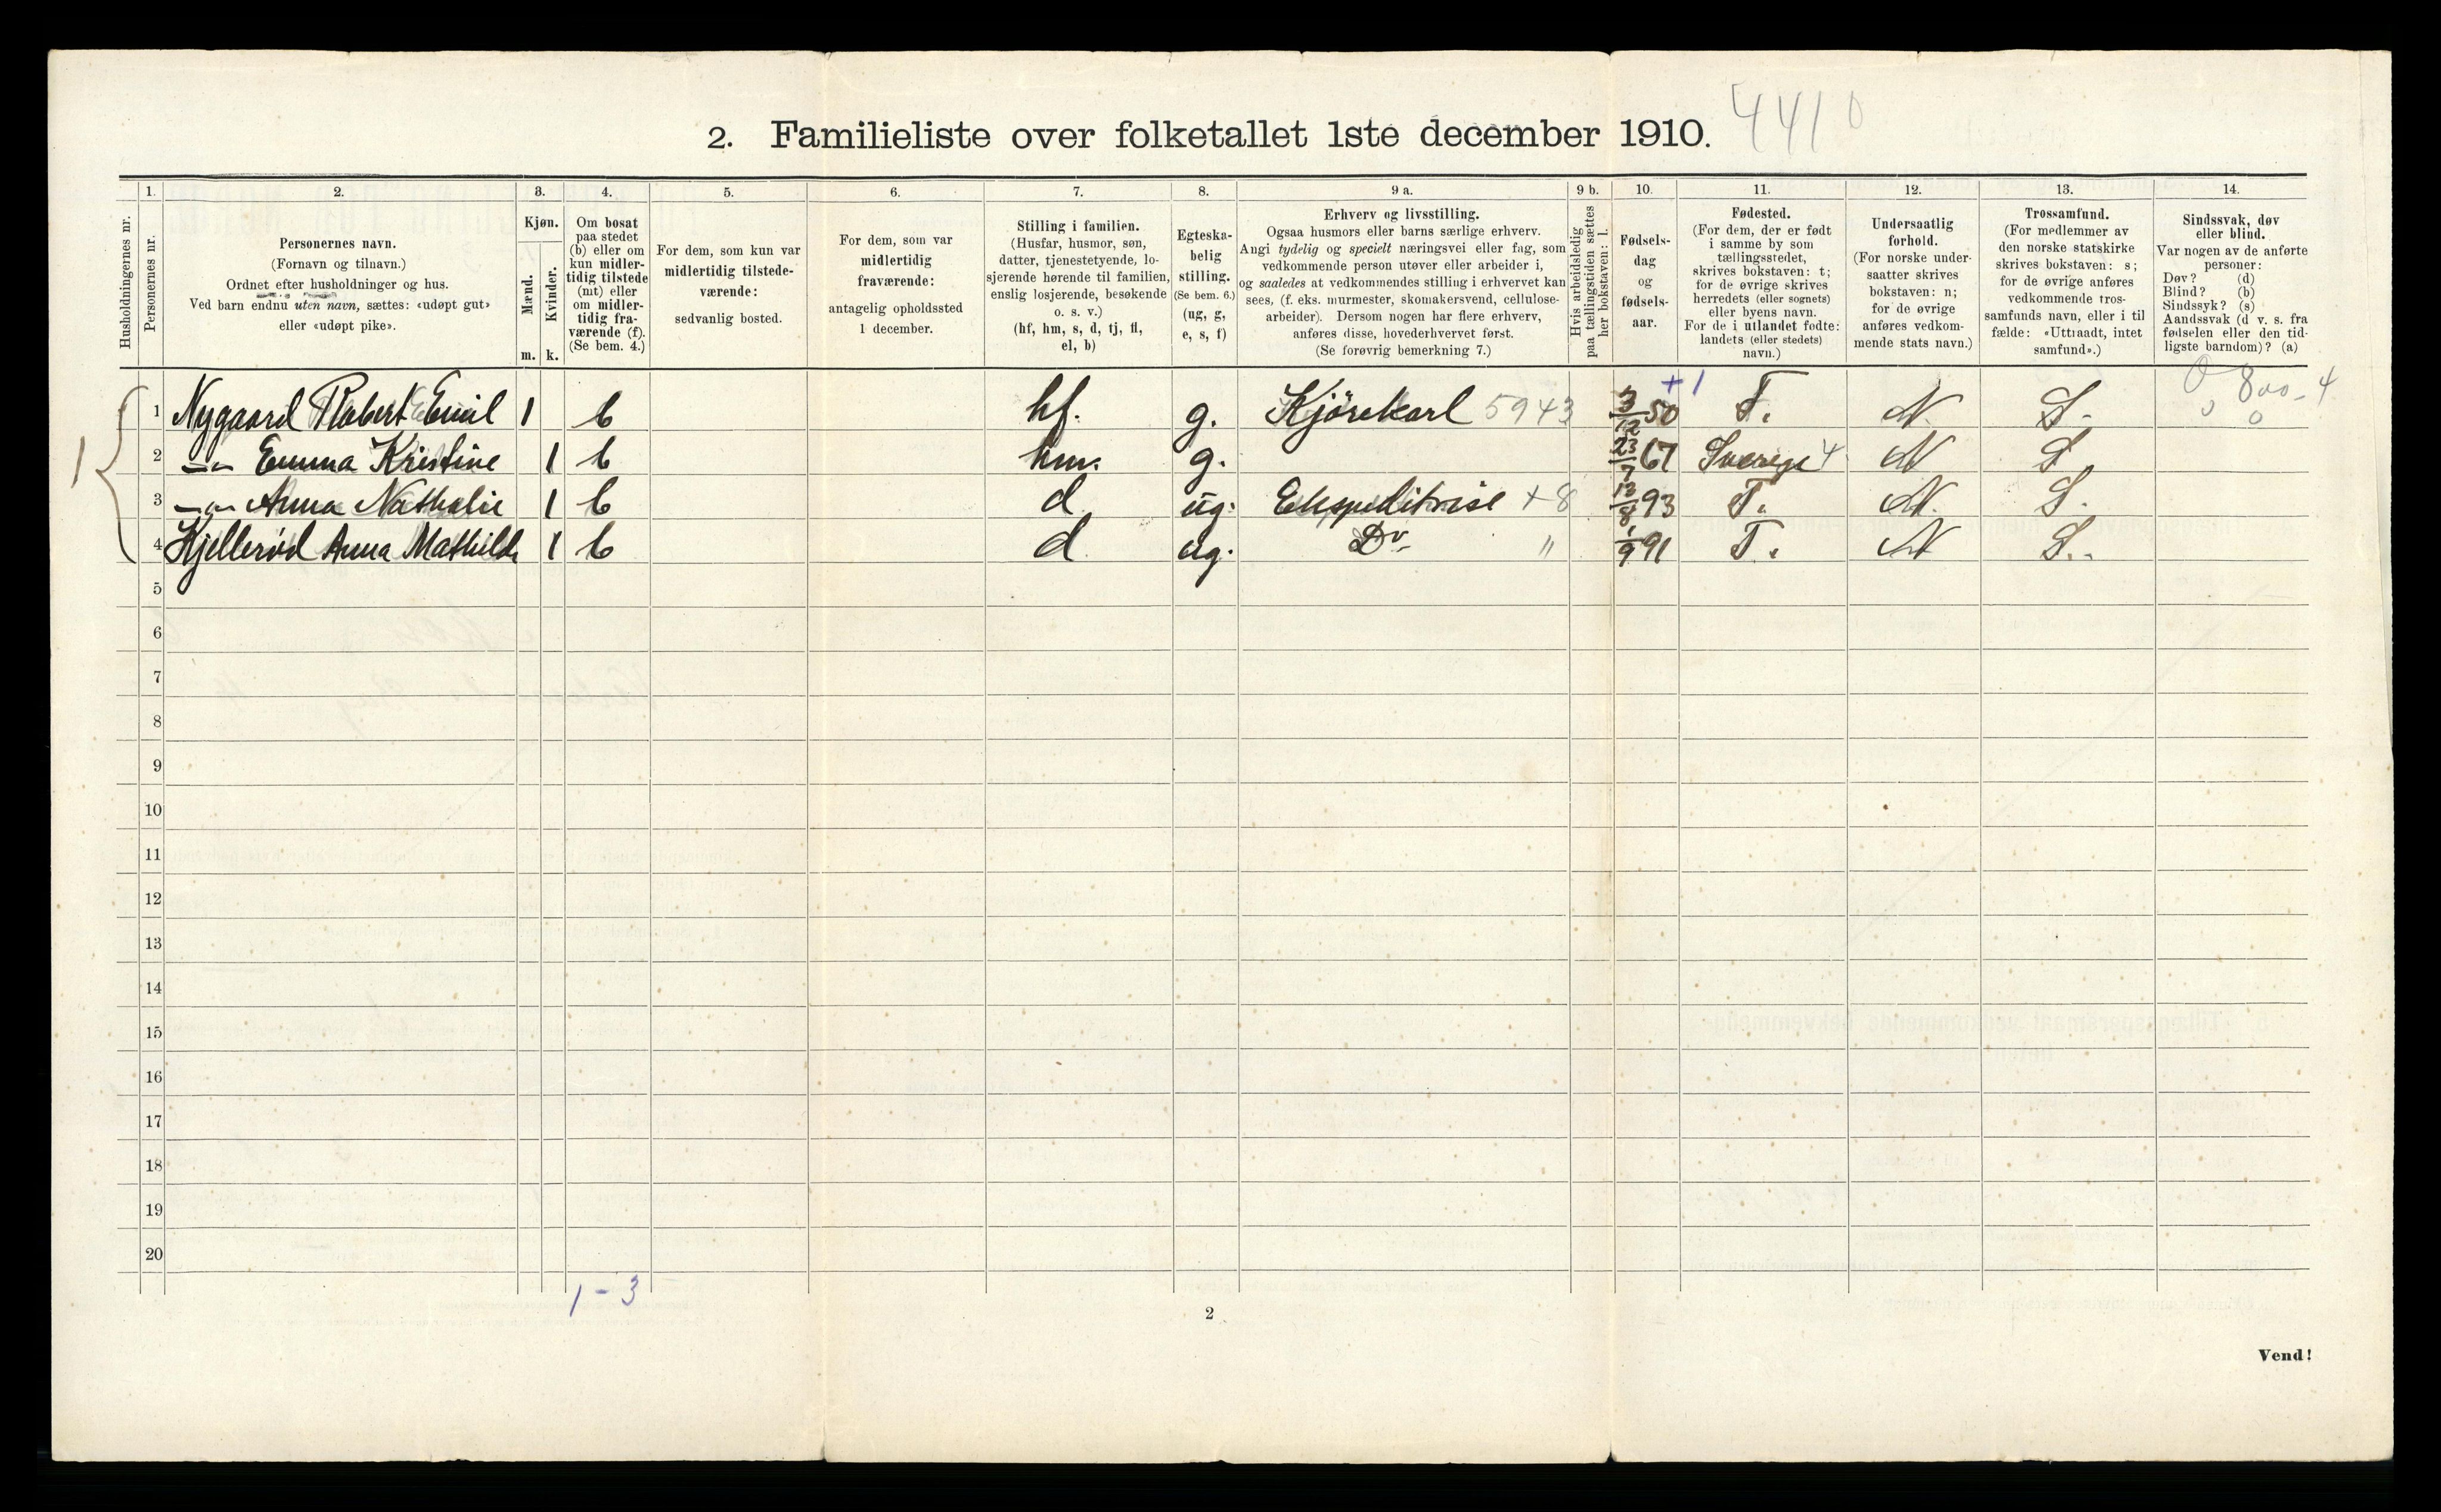 2. Familieliste over folketallet 1ste december 1910. 4410
1. 2. 3. 4. 5. 6. 7. 8. 9 a. 9 b. 10. 11. 12. 13. 14.
Husholdningernes nr.
Personernes nr.
Personernes navn.
(Fornavn og tilnavn.)
Ordnet efter husholdninger og hus.
Ved barn endnu uten navn, sættes: «udøpt gut»
eller «udøpt pike».
Kjøn.
Mænd.
m.
Kvinder.
k.
Om bosat
paa stedet
(b) eller om
kun midler-
tidig tilstede
(mt) eller
om midler-
tidig fra-
værende (f).
(Se bem. 4.)
For dem, som kun var
midlertidig tilstede-
værende:
sedvanlig bosted.
For dem, som var
midlertidig
fraværende:
antagelig opholdssted
1 december.
Stilling i familien.
(Husfar, husmor, søn,
datter, tjenestetyende, lo-
sjerende hørende til familien,
enslig losjerende, besøkende
o. s. v.)
(hf, hm, s, d, tj, fl,
el, b)
Egteska-
belig
stilling.
(Se bem. 6.)
(ug, g,
e, s, f)
Erhverv og livsstilling.
Ogsaa husmors eller barns særlige erhverv.
Angi tydelig og specielt næringsvei eller fag, som
vedkommende person utøver eller arbeider i,
og saaledes at vedkommendes stilling i erhvervet kan
sees, (f. eks. murmester, skomakersvend, cellulose-
arbeider). Dersom nogen har flere erhverv,
anføres disse, hovederhvervet først.
(Se forøvrig bemerkning 7.)
Hvis arbeidsledig
paa tællingstiden sættes
her bokstaven: l.
Fødsels-
dag
og
fødsels-
aar.
Fødested.
(For dem, der er født
i samme by som
tællingsstedet,
skrives bokstaven: t;
for de øvrige skrives
herredets (eller sognets)
eller byens navn.
For de i utlandet fødte:
landets (eller stedets)
navn.)
Undersaatlig
forhold.
(For norske under-
saatter skrives
bokstaven: n;
for de øvrige
anføres vedkom-
mende stats navn.)
Trossamfund.
(For medlemmer av
den norske statskirke
skrives bokstaven: s;
for de øvrige anføres
vedkommende tros-
samfunds navn, eller i til
fælde: «Uttraadt, intet
samfund».)
Sindssvak, døv
eller blind.
Var nogen av de anførte
personer:
Døv? (d)
Blind? (b)
Sindssyk? (s)
Aandssvak (d v. s. fra
fødselen eller den tid-
ligste barndom)? (a)
+1 0 800-4
1 1 Nygaard Robert Emil 1 b hf. g. Kjörekarl 5943 3/12 50 T. N. S. 0 0
2 -"- Emma Kristine 1 b hm. g. 23/7 67 Sverige 4 N S
3 -"- Anna Nathalie 1 b d ug. Ekspeditrise +8 13/8 93 T. N. S.
4 Kjellerød Anna Mathilde 1 b d ug. Do " 1/9 91 T. N S.
5
6
7
8
9
10
11
12
13
14
15
16
17
18
19
20
1-3
2
Vend!